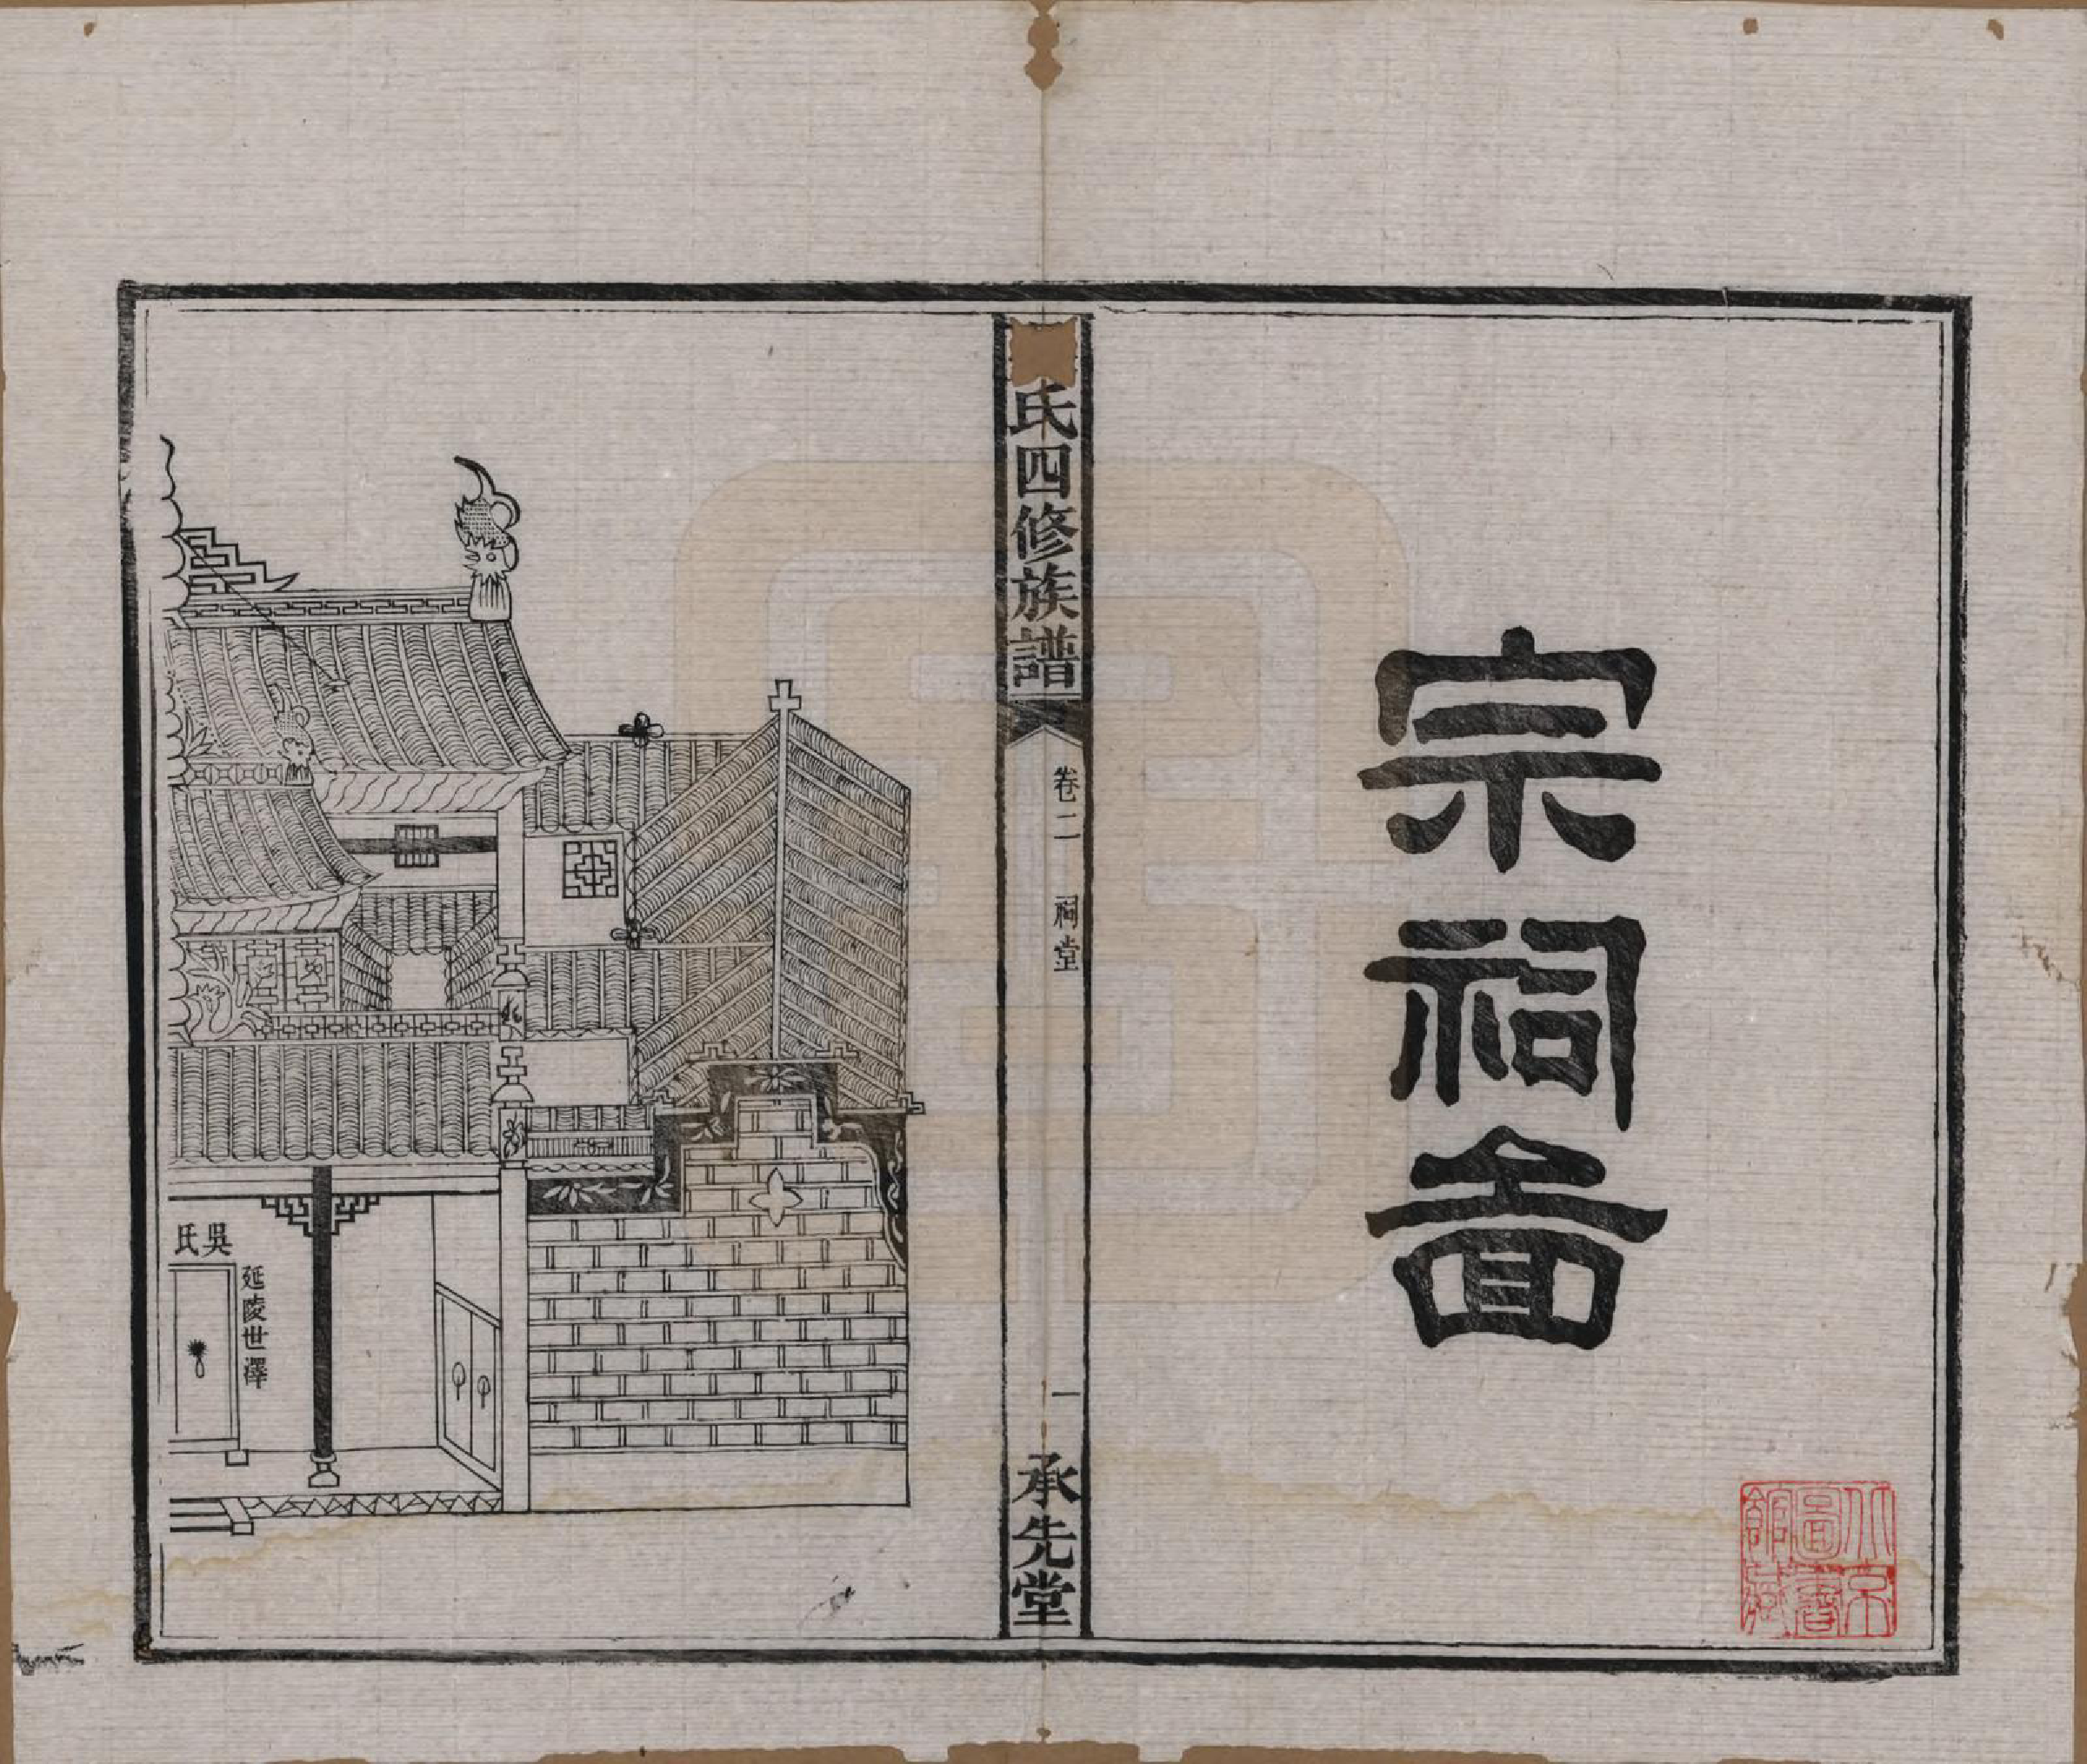 宗祠啚
氏四修族譜
卷二 祠堂
一
承先堂
吳氏
延陵世澤
北京
圖書
館藏